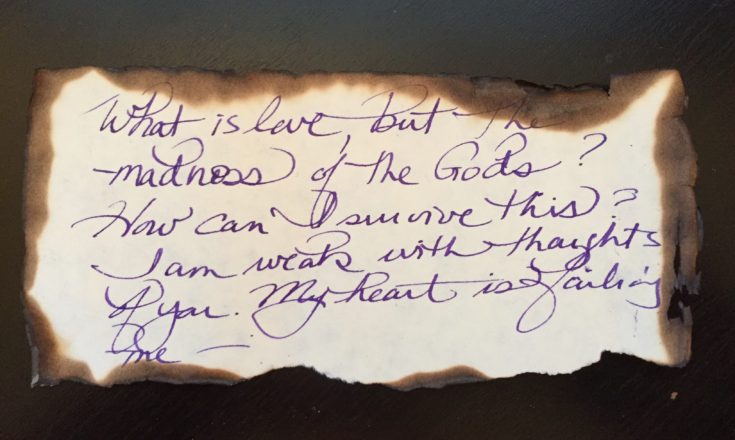 What is love, but the
madness of the Gods?
How can I survive this?
I am weak with thoughts
of you. My heart is failing
me —